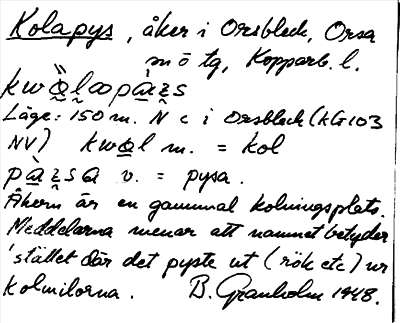 Kolapys, åker i Orsbleck, Orsa
m ö tg, Kopparb. l.
Läge: 150 m. N c i Orsbleck (kG 103
NV) kwo̲l m. = kol
v. = pysa.
Åkern är en gammal kolningsplats.
Meddelarna menar att namnet betyder
'stället där det pyste ut (rök etc) ur
kolmilorna. B. Granholm 1948.